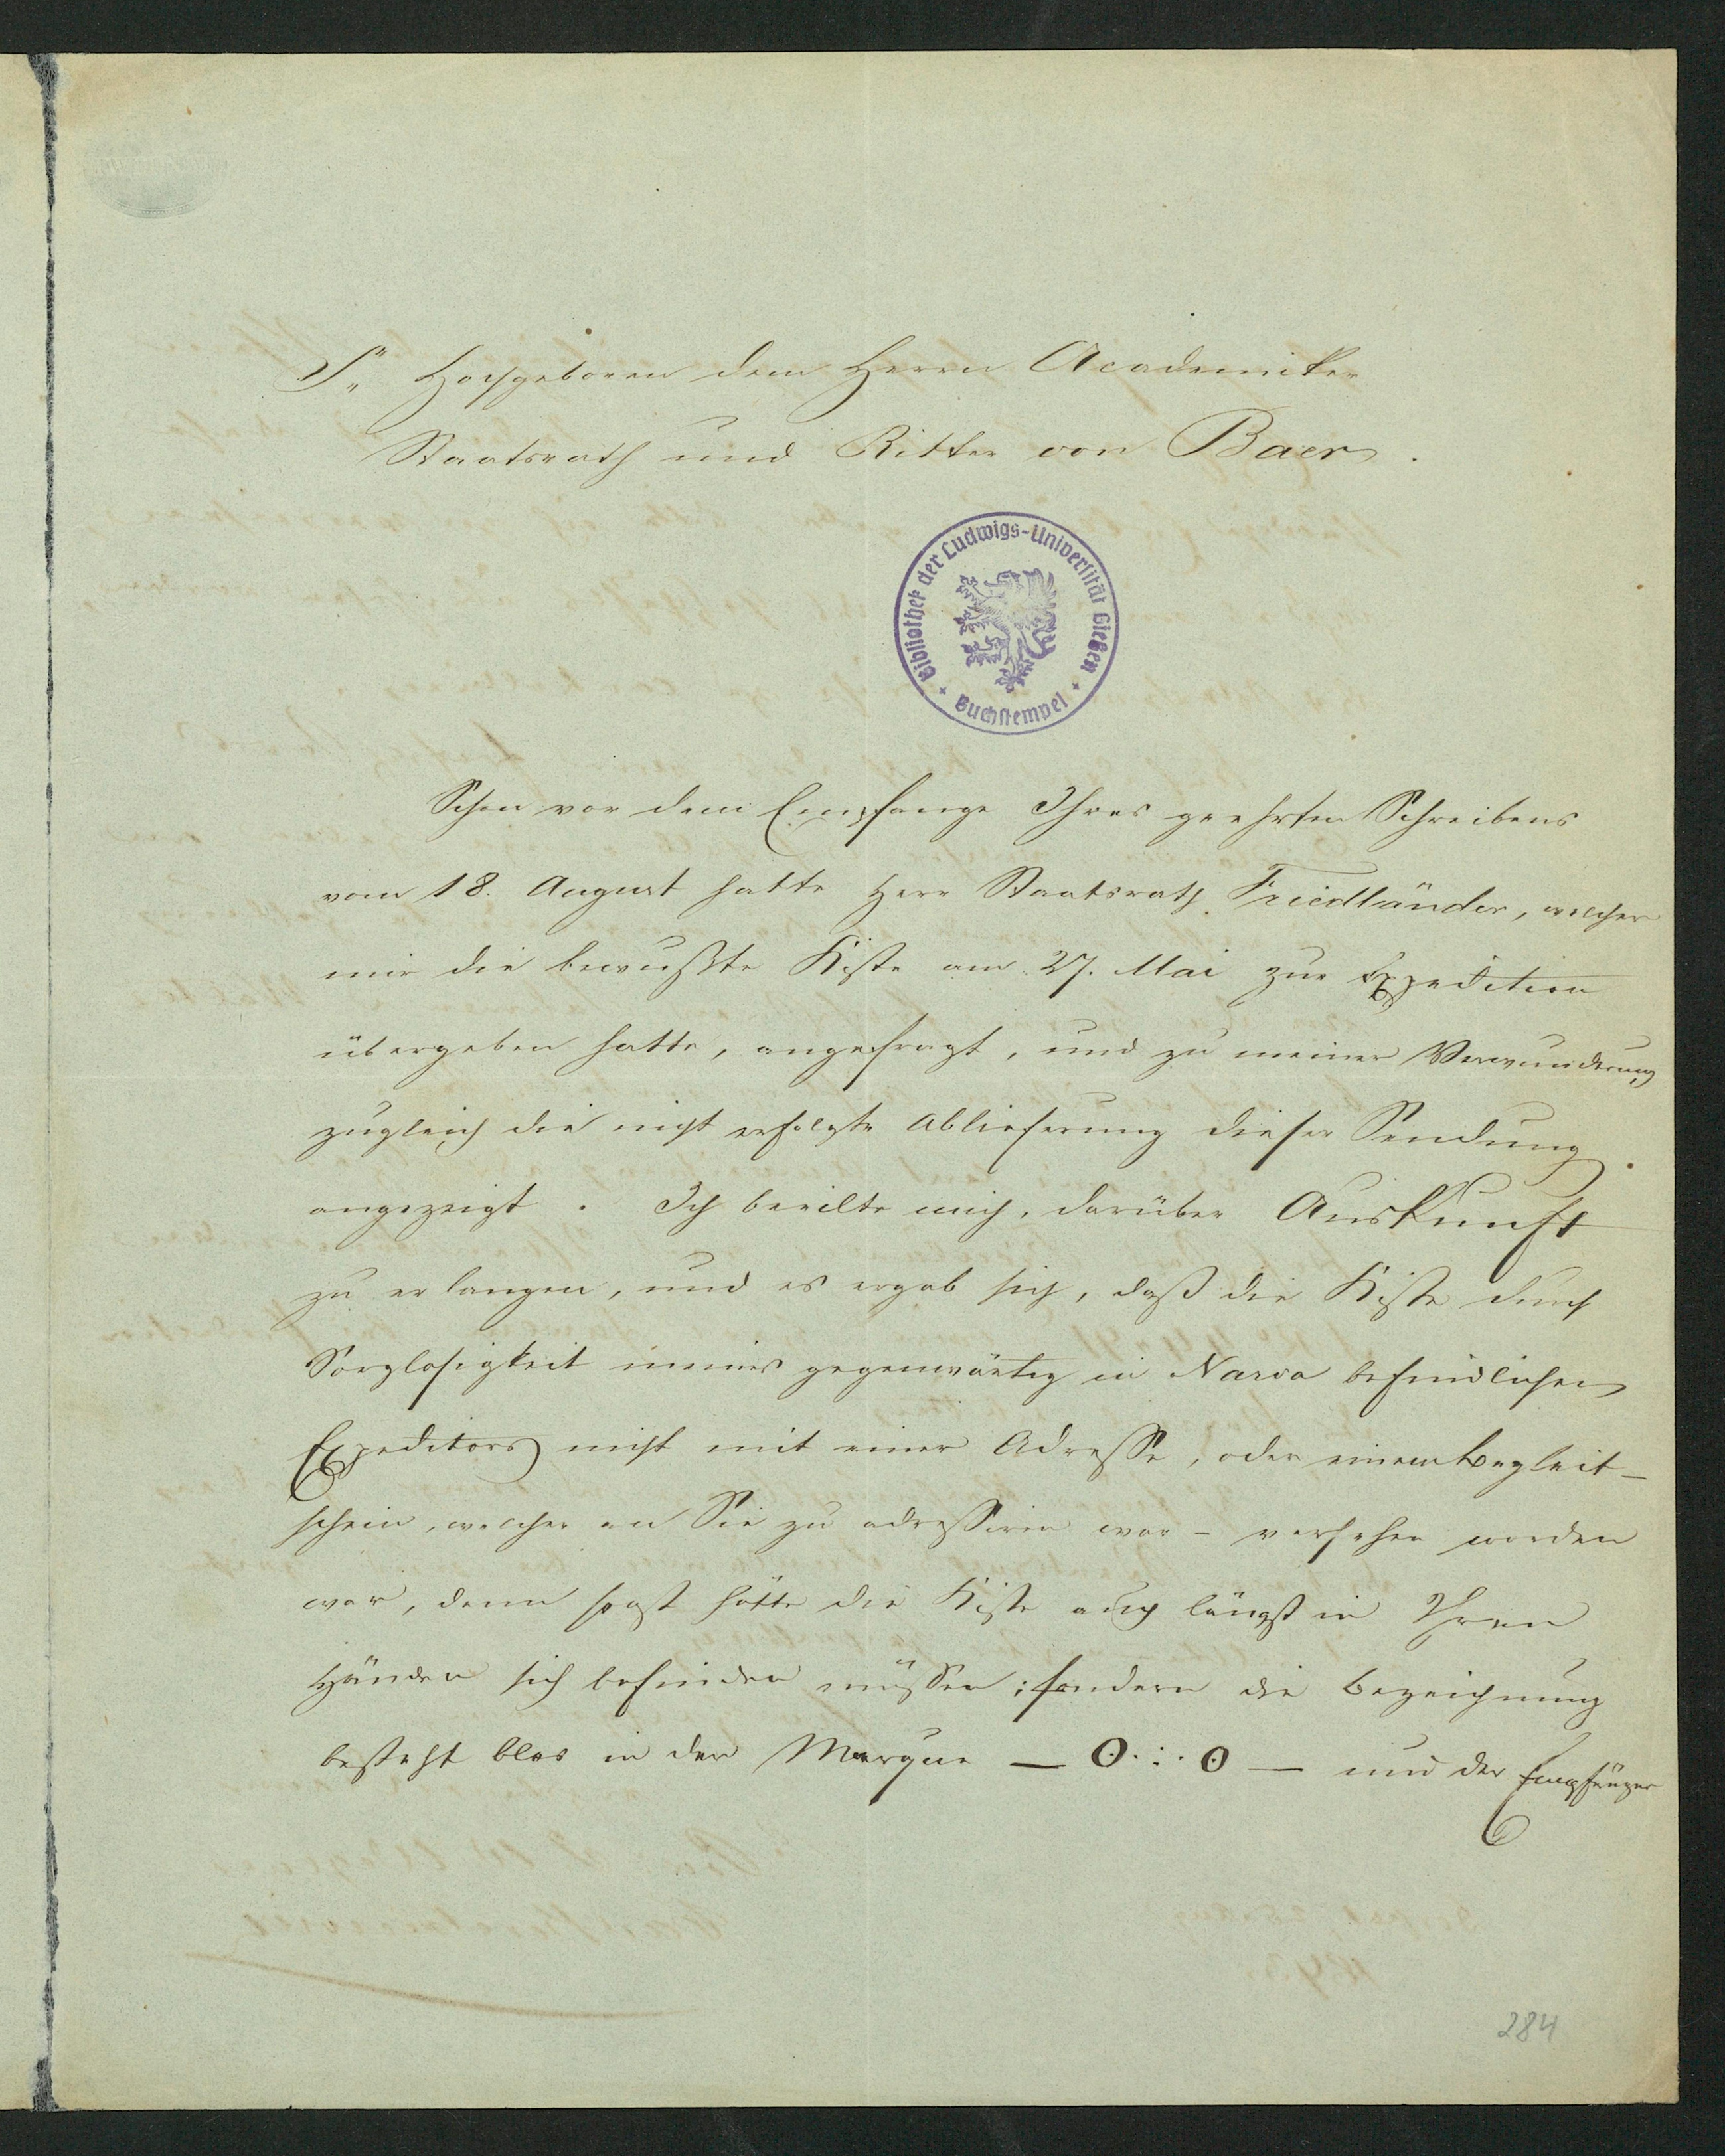 Sr Hochgeboren dem Herrn Academiker
Staatsrath und Ritter von Baer.
Bibliothek der Ludwigs-Universität Gießen
Buchstempel
Schon vor dem Empfange Ihres geehrten Schreibens
vom 18. August hatte Herr Staatsrath Friedländer, welcher
mir die bewußte Kiste am 27. Mai zur Expedition
übergeben hatte, angefragt, und zu meiner Verwunderung
zugleich die nicht erfolgte Ablieferung dieser Sendung
angezeigt. Ich beeilte mich, darüber Auskunft
zu erlangen, und es ergab sich, daß die Kiste durch
Sorglosigkeit meines gegenwärtig in Narva befindlichen
Expeditors nicht mit einer Adresse, oder einem Begleit-
schein, welcher an Sie zu adressiren war - versehen worden
war, denn sonst hätte die Kiste auch längst in Ihren
Händen sich befinden müssen; sondern die Bezeichnung
besteht blos in der Marque — O∴O — und der Empfänger
284